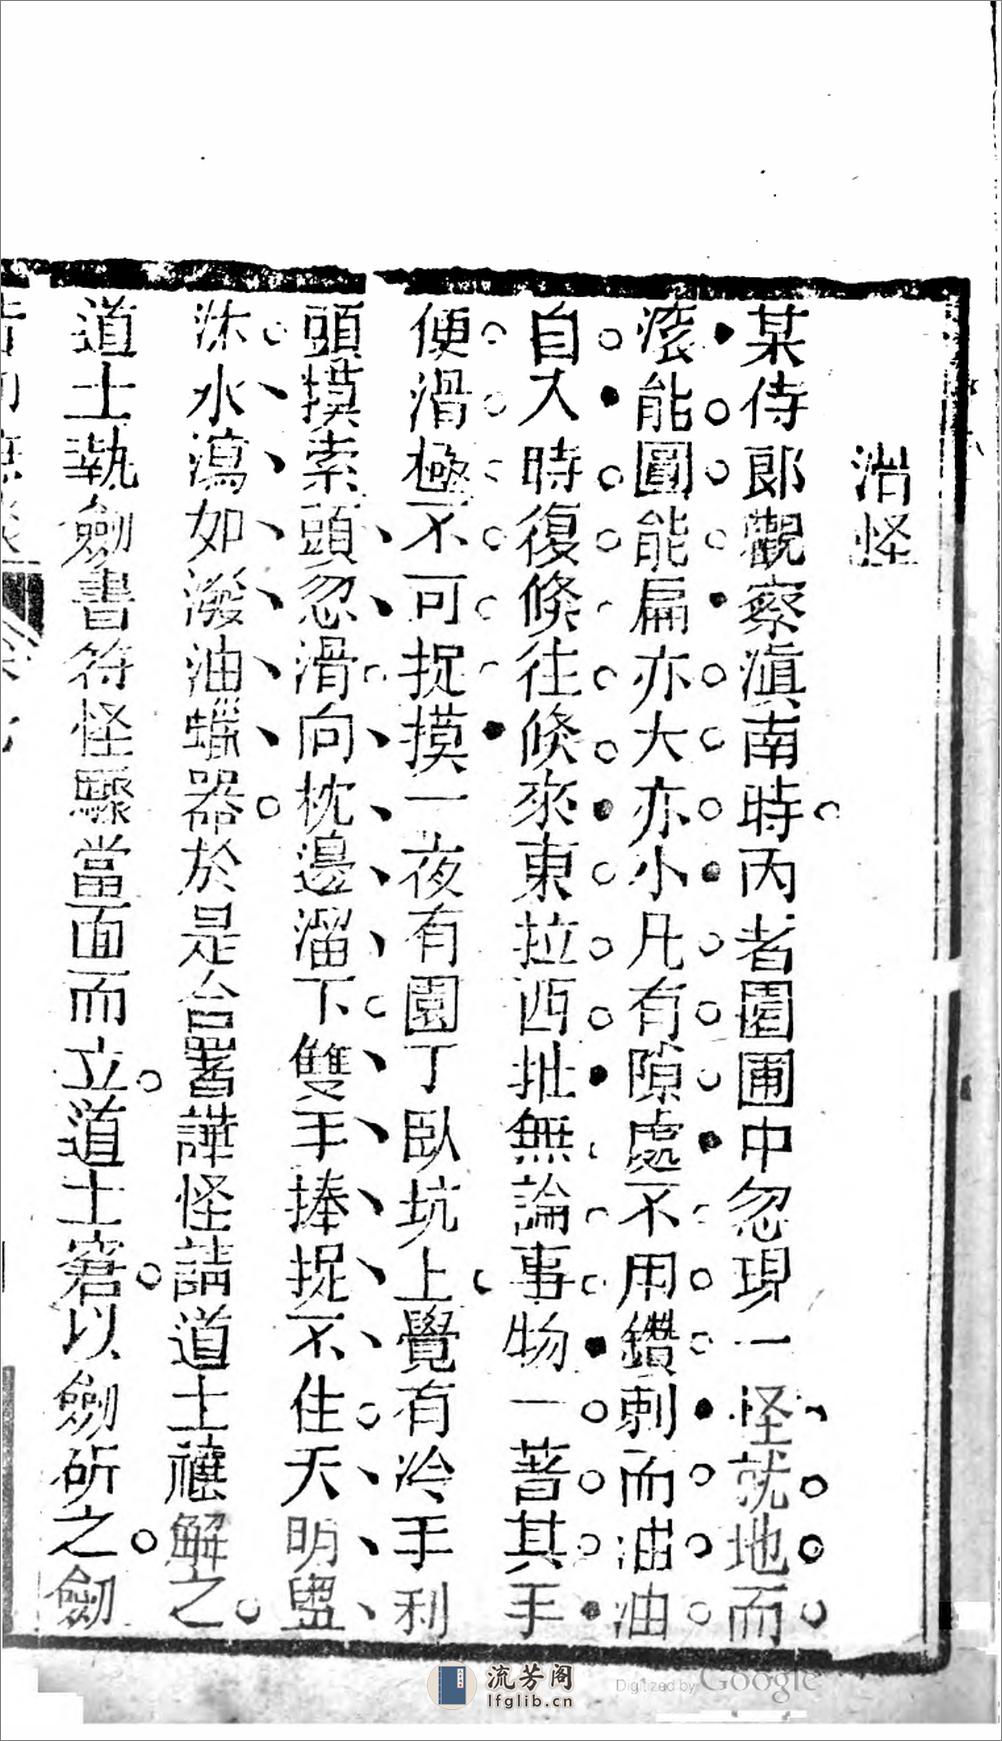 治怪
某侍郎觀察滇南時丙者園圃中忽現一怪就地而
滚能圓能扁亦大亦小凡有隙處不用鑽刺而油油
自入時復倏往倏來東拉西扯無論事物一著其手
便滑極不可捉摸一夜有園丁臥坑上覺有冷手利
頭摸索頭忽滑向枕邊溜下雙手捧捉不住天明盥
沐水瀉如潑油蠟器於是台署譁怪請道士禳解之
道士執劍書符怪驟當面而立道士窘以劍斫之劍
流芳阁
lfglib.cn
Digitized by Google